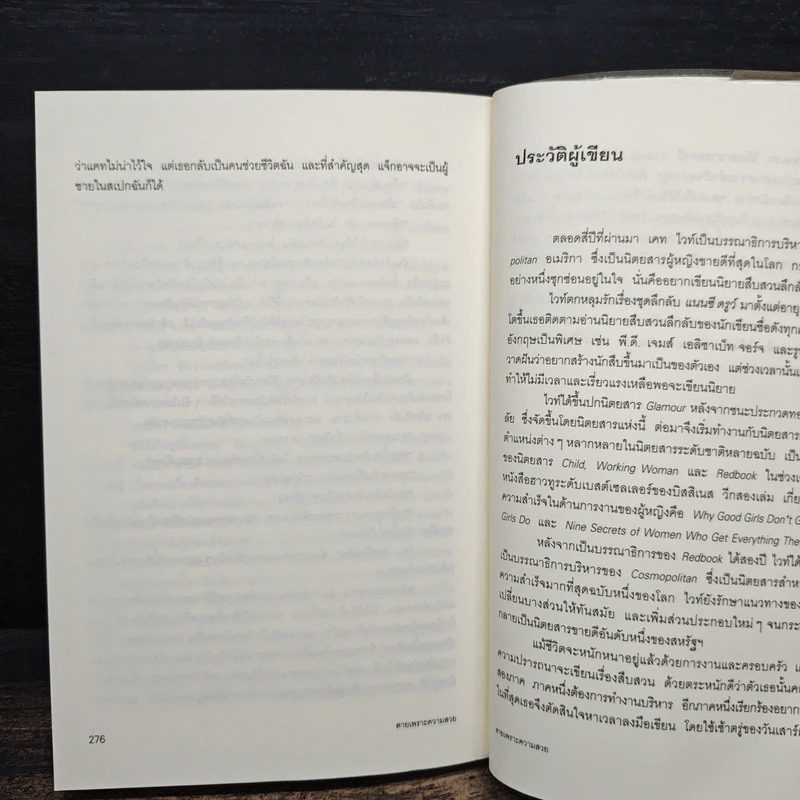 ว่าแคทไม่น่าไว้ใจ แต่เธอกลับเป็นคนช่วยชีวิตฉัน และที่สำคัญสุด แจ็กอาจจะเป็นผู้
ชายในสเปกฉันก็ได้
276
ตายเพราะความสวย
ประวัติผู้เขียน
ตลอดสี่ปีที่ผ่านมา เคท ไวท์เป็นบรรณาธิการบริหา
politan อเมริกา ซึ่งเป็นนิตยสารผู้หญิงขายดีที่สุดในโลก
อย่างหนึ่งซุกซ่อนอยู่ในใจ นั่นคืออยากเขียนนิยายสืบสวนลึกลั
ไวท์ตกหลุมรักเรื่องชุดลึกลับ แนนซี ดรูว์ มาตั้งแต่อายุ
โตขึ้นเธอติดตามอ่านนิยายสืบสวนลึกลับของนักเขียนชื่อดังทุกค
อังกฤษเป็นพิเศษ เช่น พี.ดี. เจมส์ เอลิซาเบ็ท จอร์จ และรู
วาดฝันว่าอยากสร้างนักสืบขึ้นมาเป็นของตัวเอง แต่ช่วงเวลานั้น
ทำให้ไม่มีเวลาและเรี่ยวแรงเหลือพอจะเขียนนิยาย
ไวท์ได้ขึ้นปกนิตยสาร Glamour หลังจากชนะประกวดทอ
ลัย ซึ่งจัดขึ้นโดยนิตยสารแห่งนี้ ต่อมาจึงเริ่มทำงานกับนิตยสาร
ตำแหน่งต่าง ๆ หลากหลายในนิตยสารระดับชาติหลายฉบับ เป็น
ของนิตยสาร Child, Working Woman และ Redbook ในช่วง
หนังสือฮาวทูระดับเบสต์เซลเลอร์ของบิสสิเนส วีกสองเล่ม เกี่ย
ความสำเร็จในด้านการงานของผู้หญิงคือ Why Good Girls Don't G
Girls Do และ Nine Secrets of Women Who Get Everything The
หลังจากเป็นบรรณาธิการของ Redbook ได้สองปี ไวท์ได้
เป็นบรรณาธิการบริหารของ Cosmopolitan ซึ่งเป็นนิตยสารสำห
ความสำเร็จมากที่สุดฉบับหนึ่งของโลก ไวท์ยังรักษาแนวทางของ
เปลี่ยนบางส่วนให้ทันสมัย และเพิ่มส่วนประกอบใหม่ ๆ จนกระ
กลายเป็นนิตยสารขายดีอันดับหนึ่งของสหรัฐฯ
แม้ชีวิตจะหนักหนาอยู่แล้วด้วยการงานและครอบครัว
ความปรารถนาจะเขียนเรื่องสืบสวน ด้วยตระหนักดีว่าตัวเธอนั้น
สองภาค ภาคหนึ่งต้องการทำงานบริหาร อีกภาคหนึ่งเรียกร้องอยาก
ในที่สุดเธอจึงตัดสินใจหาเวลาลงมือเขียน โดยใช้เช้าตรู่ของวันเสาร์
ตายเพราะความสวย